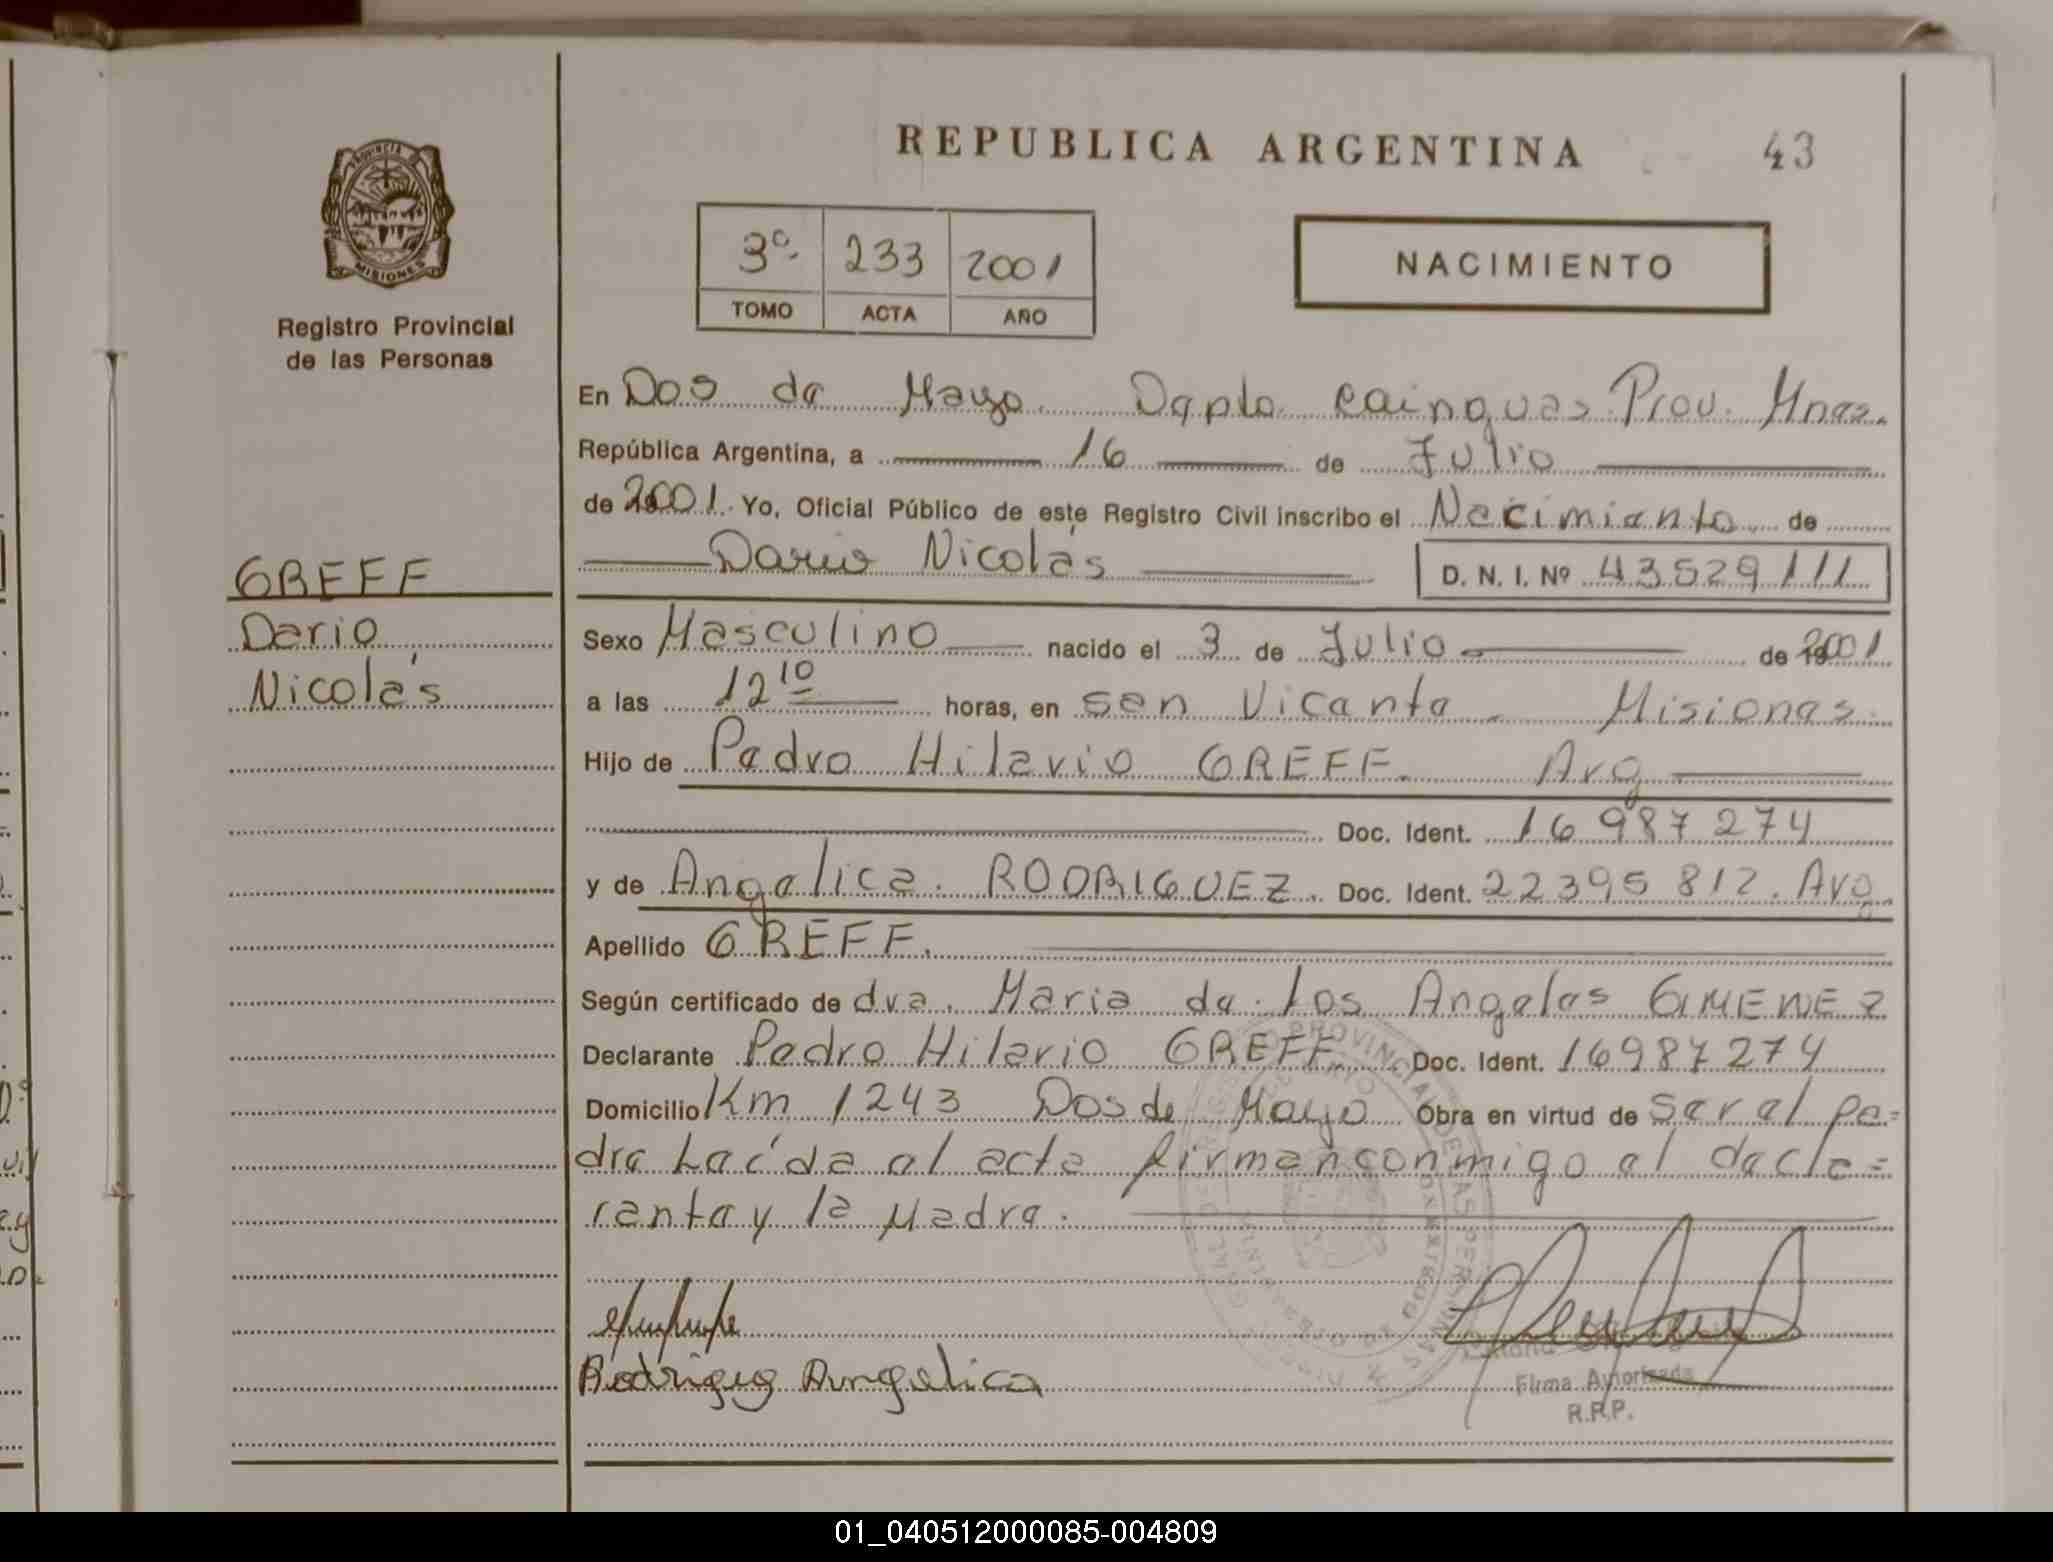 REPUBLICA ARGENTINA
43
PROVINCIA DE
MISIONES
Registro Provincial
de las Personas
3º 233 2001
TOMO ACTA AÑO
NACIMIENTO
En Dos de Mayo. Dpto Cainguas Prov. Mnes.
República Argentina, a 16 de Julio
de 2001. Yo, Oficial Público de este Registro Civil inscribo el Nacimiento de
Dario Nicolás D. N. I. Nº 43529111
GREFF
Dario
Nicolás
Sexo Masculino nacido el 3 de Julio de 2001
a las 12 10 horas, en San Vicente. Misiones.
Hijo de Pedro Hilario GREFF. Arg
Doc. Ident. 16987274
y de Angelica. RODRIGUEZ. Doc. Ident. 22395812. Arg.
Apellido GREFF.
Según certificado de dra. Maria de los Angeles GIMENEZ
Declarante Pedro Hilario GREFF Doc. Ident. 16987274
Domicilio Km 1243 Dos de Mayo Obra en virtud de ser el pa=
dre Leída el acta firman conmigo el decla=
rante y la Madre.
Rodrigeg Angelica
Firma Autorizada
R.P.P.
01_040512000085-004809